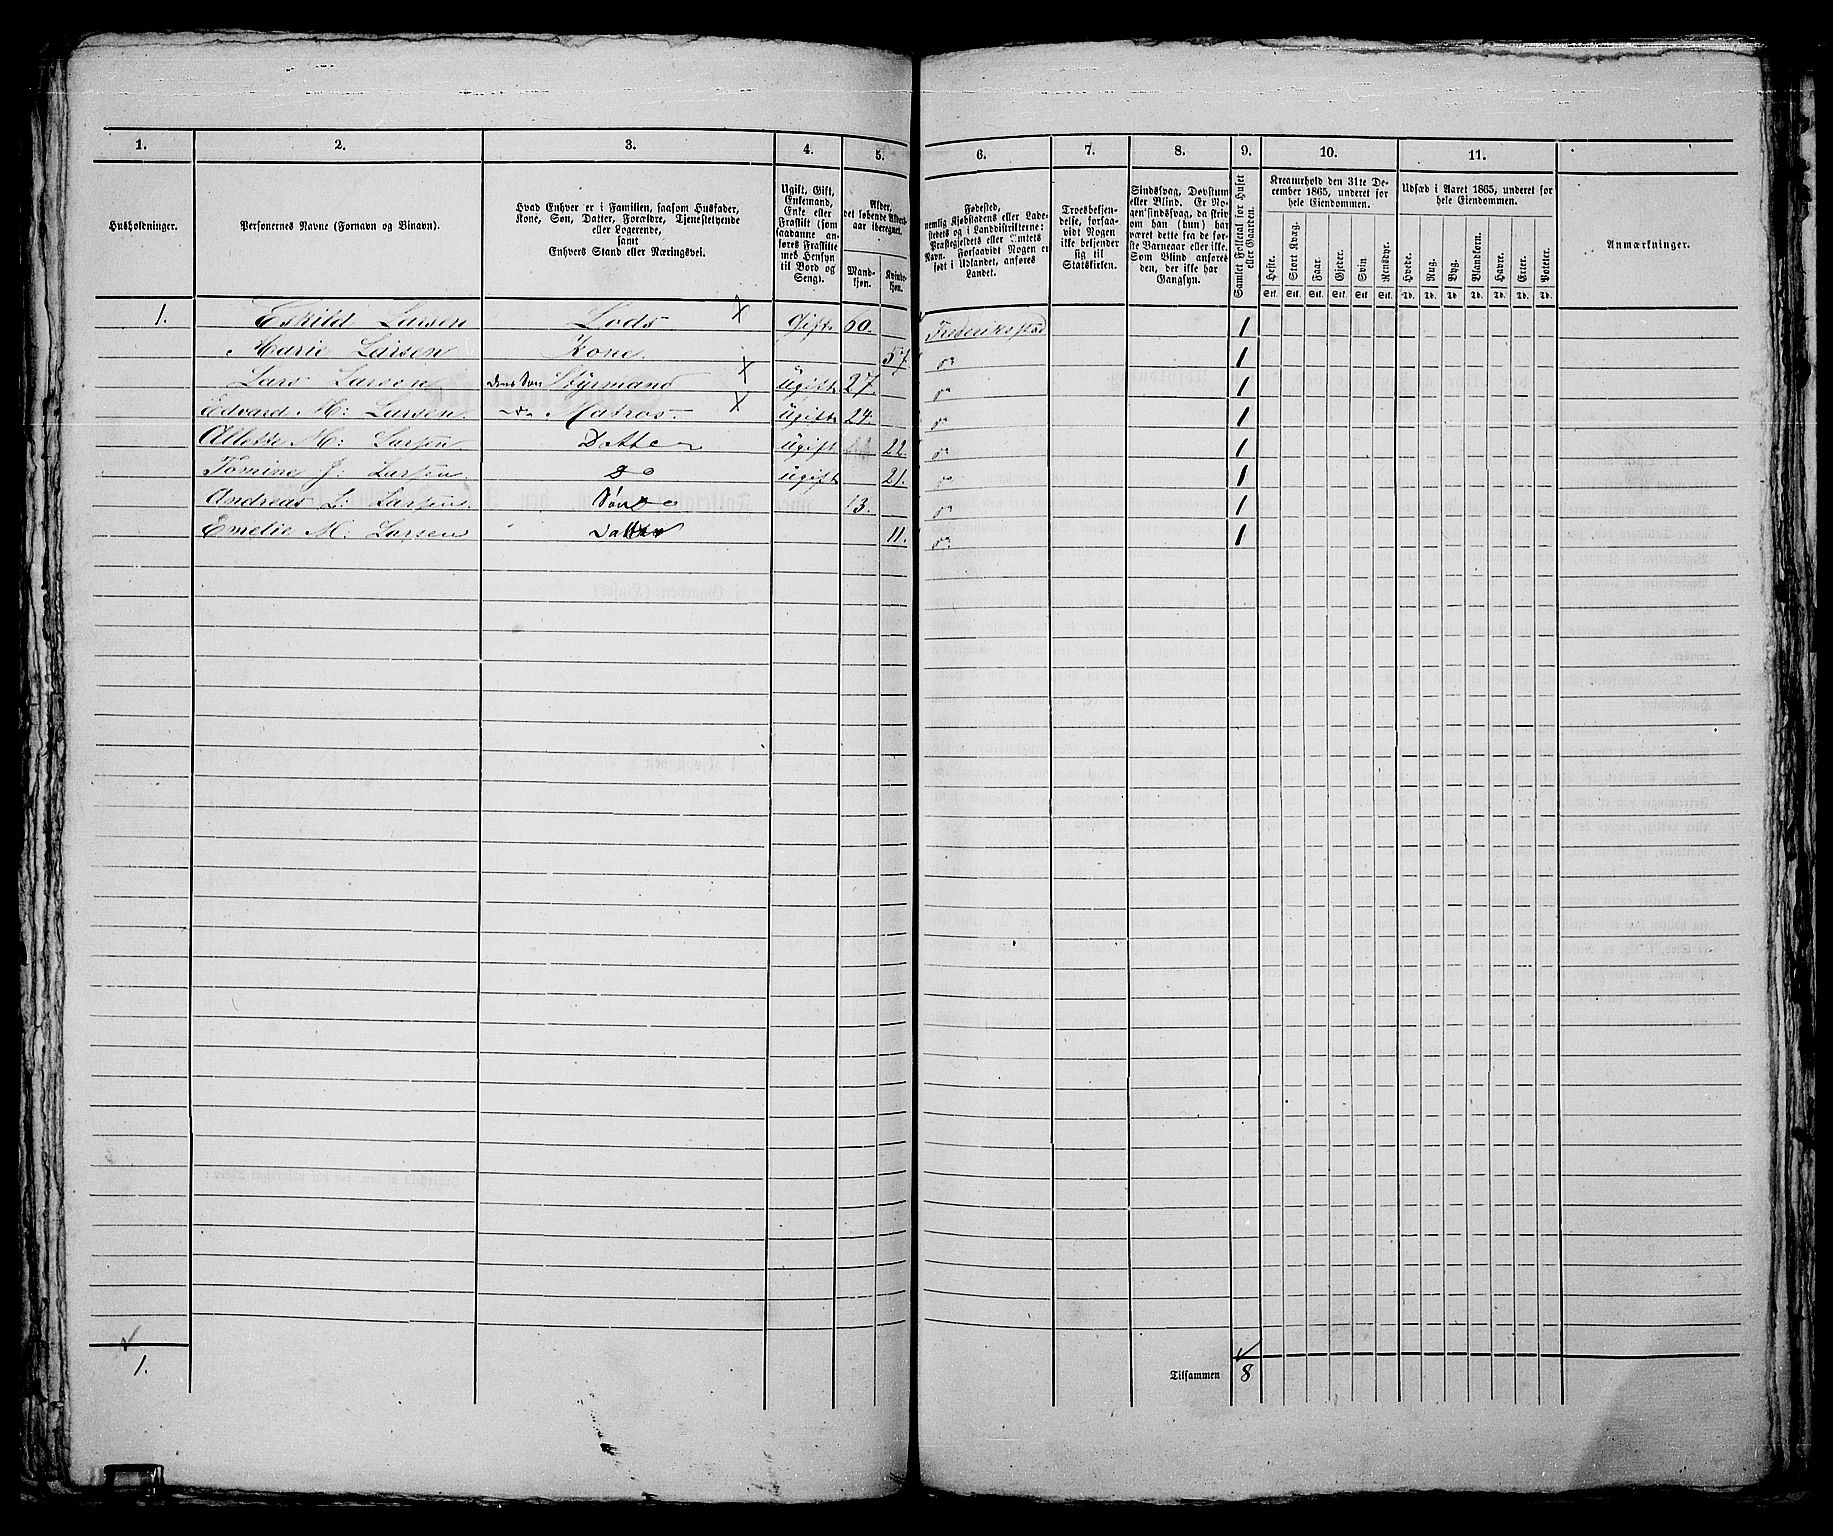 1. 2. 3. 4. 5. 6. 7. 8. 9. 10. 11.
Husholdninger.
Personernes Navne (Fornavn og Binavn).
Hvad Enhver er i Familien, saasom Husfader,
Kone, Søn, Datter, Forældre, Tjenestetyende
eller Logerende,
samt
Enhvers Stand eller Næringsvei.
Ugift, Gift,
Enkemand,
Enke eller
Fraskilt (som
saadanne an-
føres Fraskilte
med Hensyn
til Bord og
Seng).
Alder,
det løbende Alders-
aar iberegnet.
Mand-
kjøn.
Kvinde-
kjøn.
Fødested,
nemlig Kjøbstadens eller Lade-
stedets og i Landdistrikterne:
Præstegjeldets eller Amtets
Navn. Forsaavidt Nogen er
født i Udlandet, anføres
Landet.
Troesbekjen-
delse, forsaa-
vidt Nogen
ikke bekjender
sig til
Statskirken.
Sindssvag, Døvstum
eller Blind. Er No-
gen sindssvag, da skriv
om han (hun) har
været dette fra de før-
ste Barneaar eller ikke.
Som Blind anføres
den, der ikke har
Gangsyn.
Samlet Folketal for Huset
eller Gaarden.
Kreaturhold den 31te De-
cember 1865, underet for
hele Eiendommen.
Heste. Stort Kvæg. Faar. Gjeder. Svin. Rensdyr.
Stk. Stk. Stk. Stk. Stk. Stk.
Udsæd i Aaret 1865, underet for
hele Eiendommen.
Hvede. Rug. Byg. Blandkorn. Havre. Erter. Poteter.
Td. Td. Td. Td. Td. Td. Td.
Anmærkninger.
1. Eskild Larsen Lods X Gift 60. Frederiksstad 1
Marie Larsen Kone. 57. do 1
Lars Larsen deres Søn Styrmand X Ugift 27. do 1
Edvard M: Larsen. do Matros X Ugift 24. do 1
Allette M: Larsen Datter Ugift 22. do 1
Tomine J: Larsen do Ugift 21. do 1
Andreas L: Larsen. Søn 13. do 1
Emelie M. Larsen Datter 11. do 1
1.
Tilsammen 8